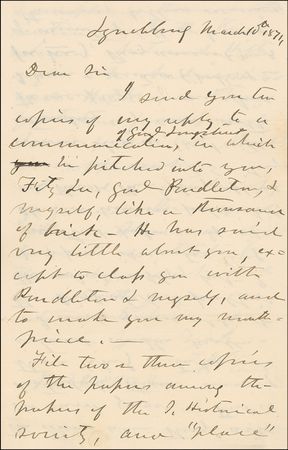 Lynchburg March 10th 1871,
Dear Sir
I send you ten
copies of my reply to a
of Genl Longstreet
communication, in which
he pitched into you,
Fitz Lee, Genl Pendleton, &
myself, like a thousand
of brick — He has said
very little about you, ex-
cept to class you with
Pendleton & myself, and
to make you my mouth-
piece. —
File two or three copies
of the papers among the
papers of the S. Historical
society, and "place"